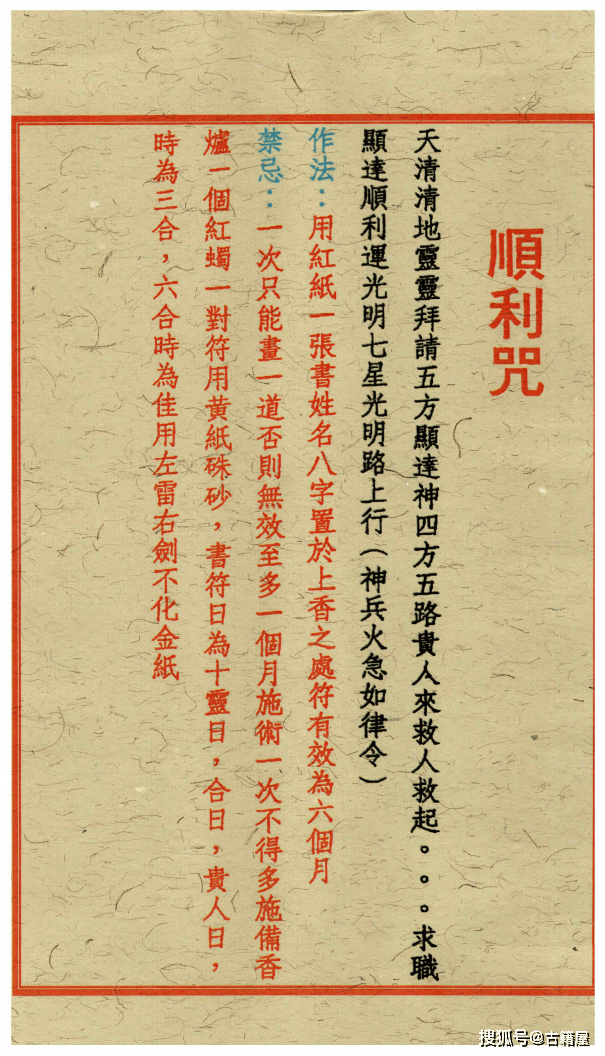 順利咒
天清清地靈靈拜請五方顯達神四方五路貴人來救人救起。。。求職
顯達順利運光明七星光明路上行（神兵火急如律令）
作法：用紅紙一張書姓名八字置於上香之處符有效為六個月
禁忌：一次只能畫一道否則無效至多一個月施術一次不得多施備香
爐一個紅蠋一對符用黃紙硃砂，書符日為十靈日，合日，貴人日，
時為三合，六合時為佳用左雷右劍不化金紙
搜狐号@古籍屋